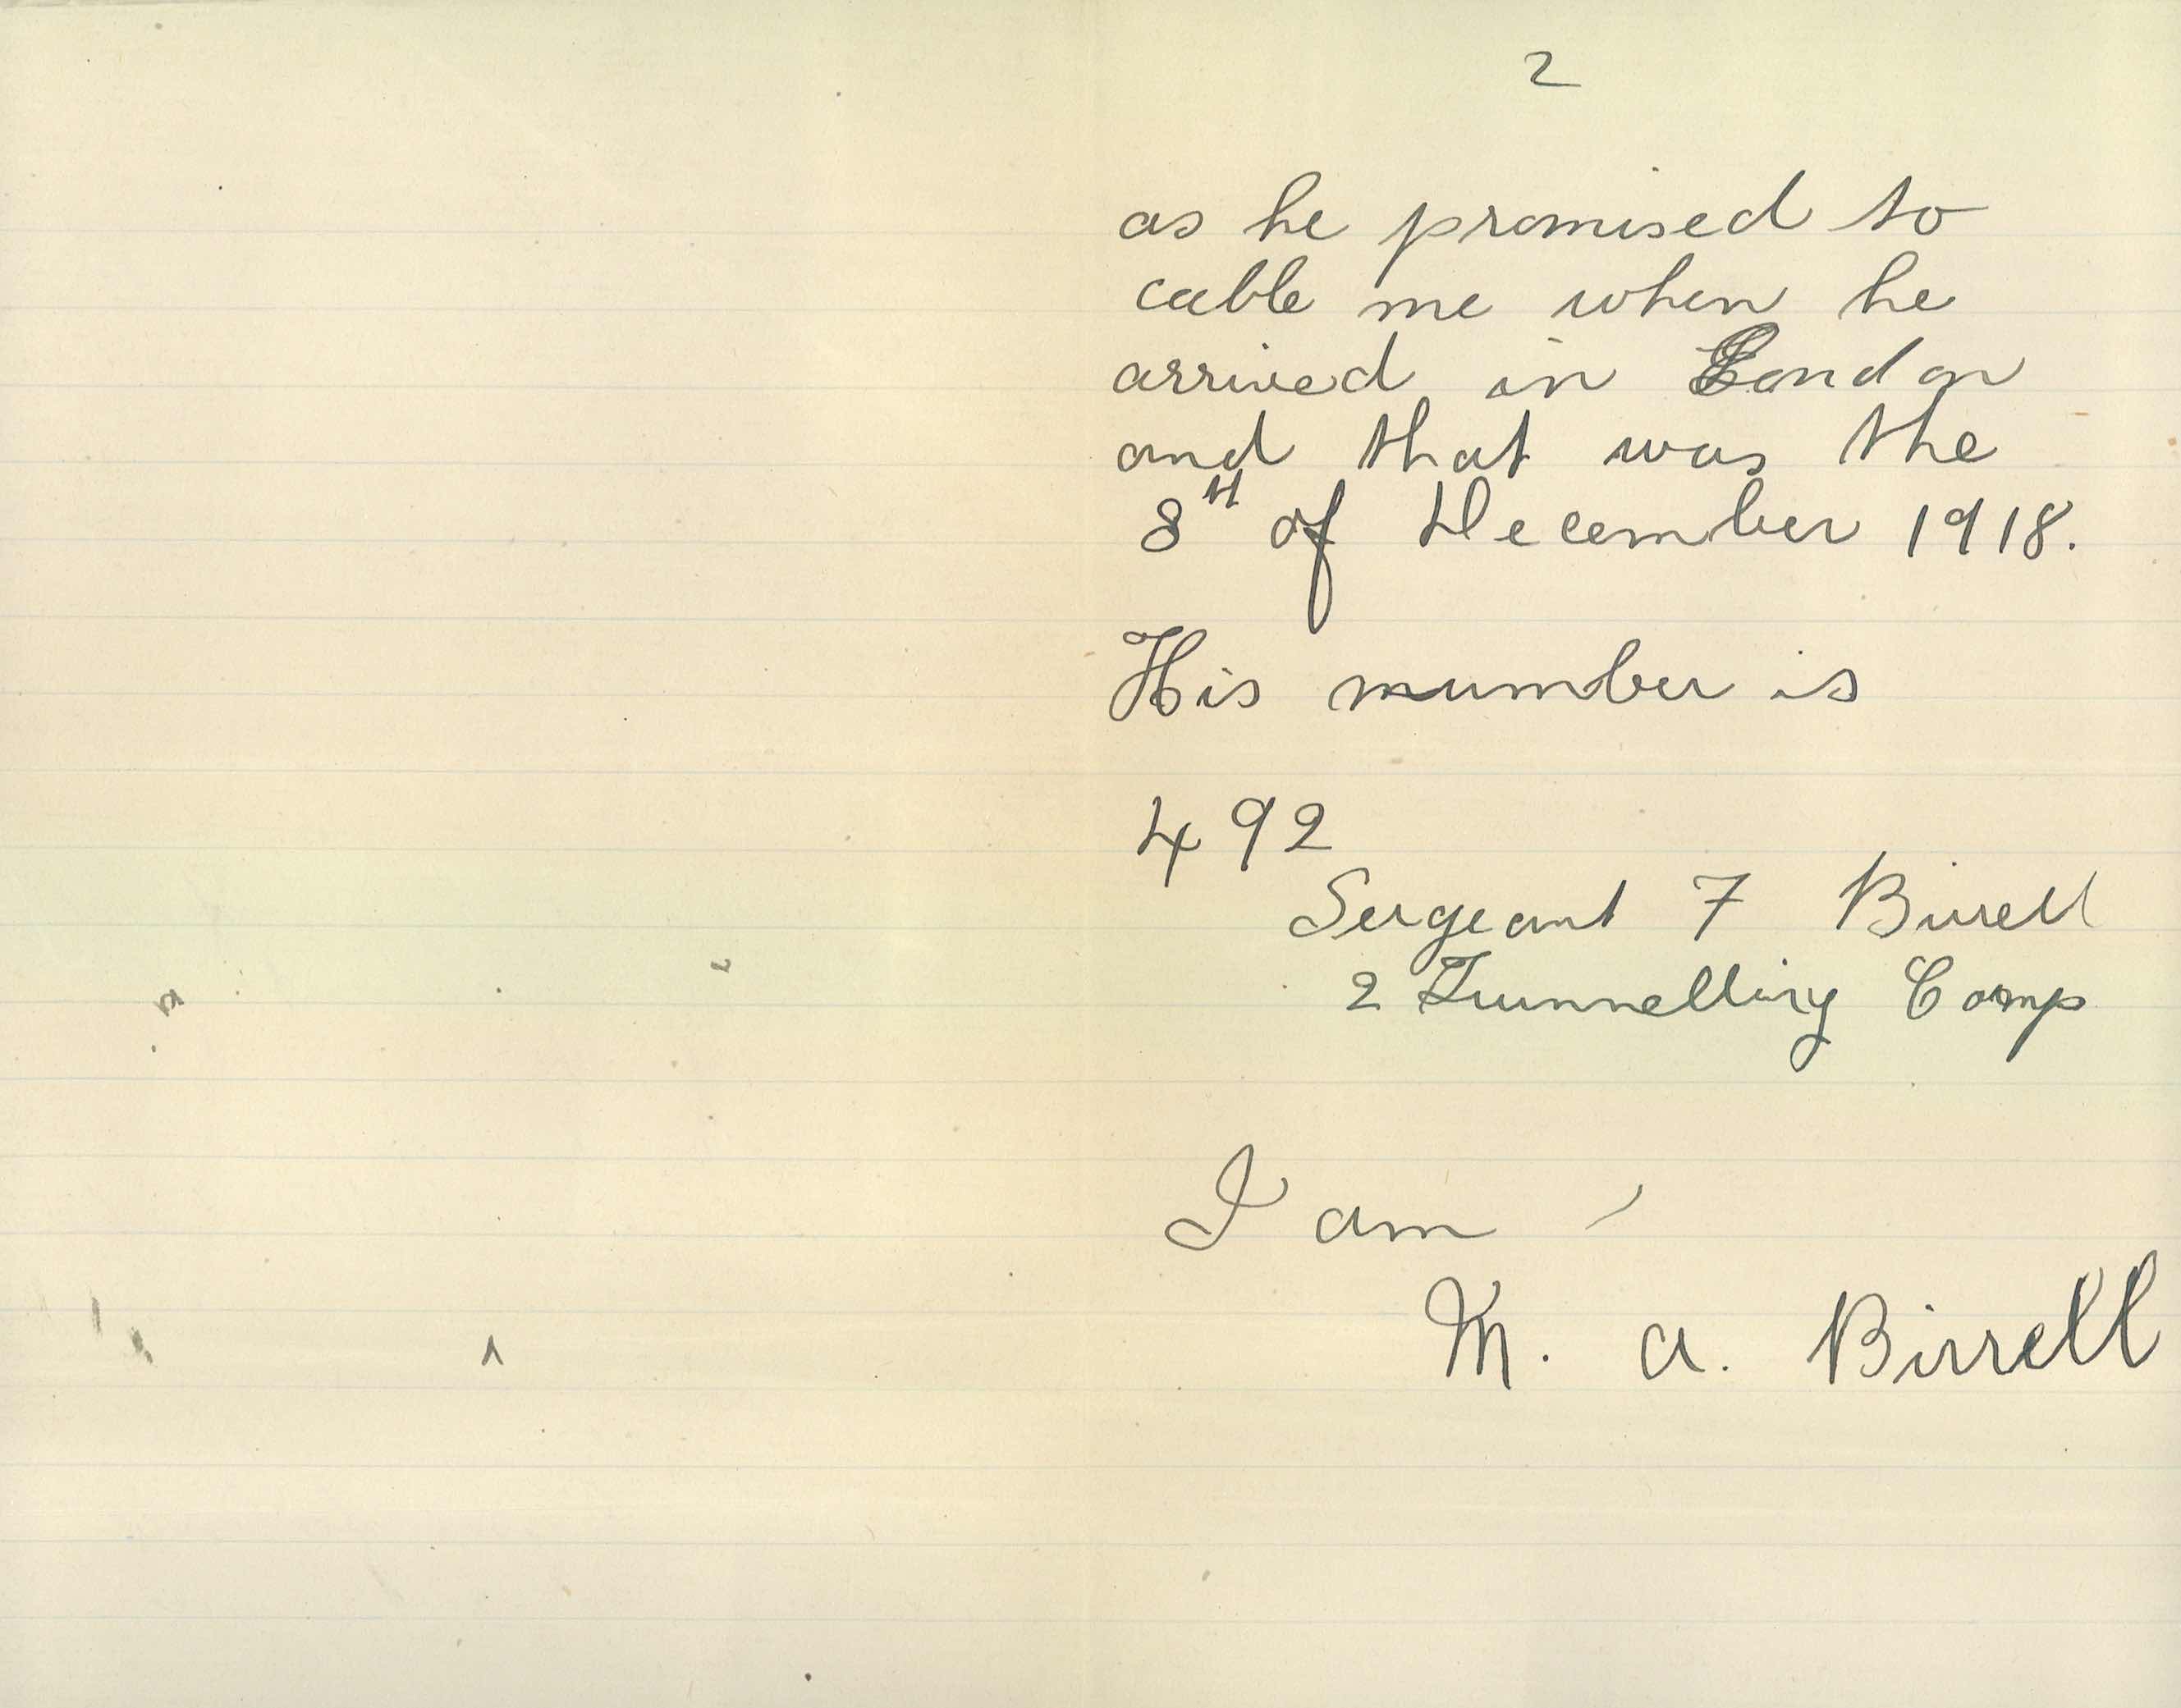 2
as he promised to
cable me when he
arrived in London
and that was the
8th of December 1918.
His number is
492
Sergeant F Birrell
2 Tunnelling Comp
I am
M. A. Birrell